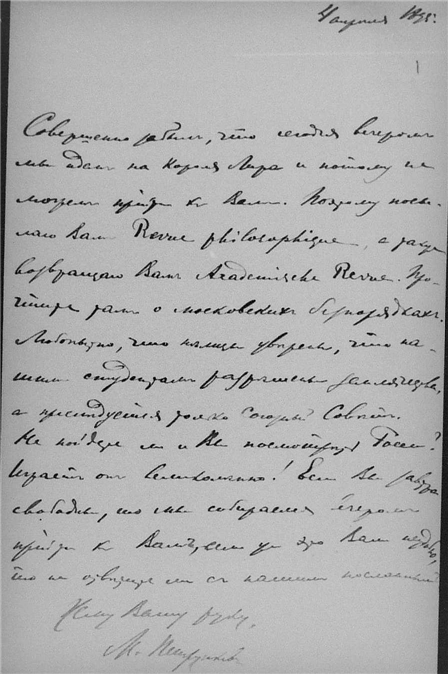 4 апреля 189
1
Совершенно забылъ, что сегодня вечеромъ
мы идемъ на Короля Лира и потому не
можемъ прійти къ Вамъ. Поэтому посы-
лаю Вамъ Revue philosophique, а также
возвращаю Вамъ Academische Revue. Про-
чтите тамъ о московскихъ безпорядкахъ.
Любопытно, что нѣмцы увѣрены, что на-
шимъ студентамъ разрѣшены землячества,
а преслѣдуется только Союзный Совѣтъ.
Не пойдете ли и Вы посмотрѣть Росси?
Играетъ онъ великолѣпно! Если Вы завтра
свободны, то мы собираемся вечеромъ
прійти къ Вамъ, если же это Вамъ неудобно,
то не откажите ли съ нашимъ посланнымъ
Жму Вашу руку,
М.